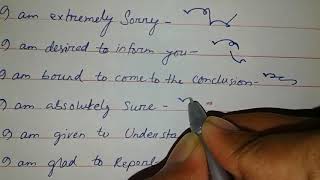 I am extremely Sorry -
I am desired to inform you -
I am bound to come to the conclusion -
I am absolutely Sure -
I am given to Understa
I am grad to Report